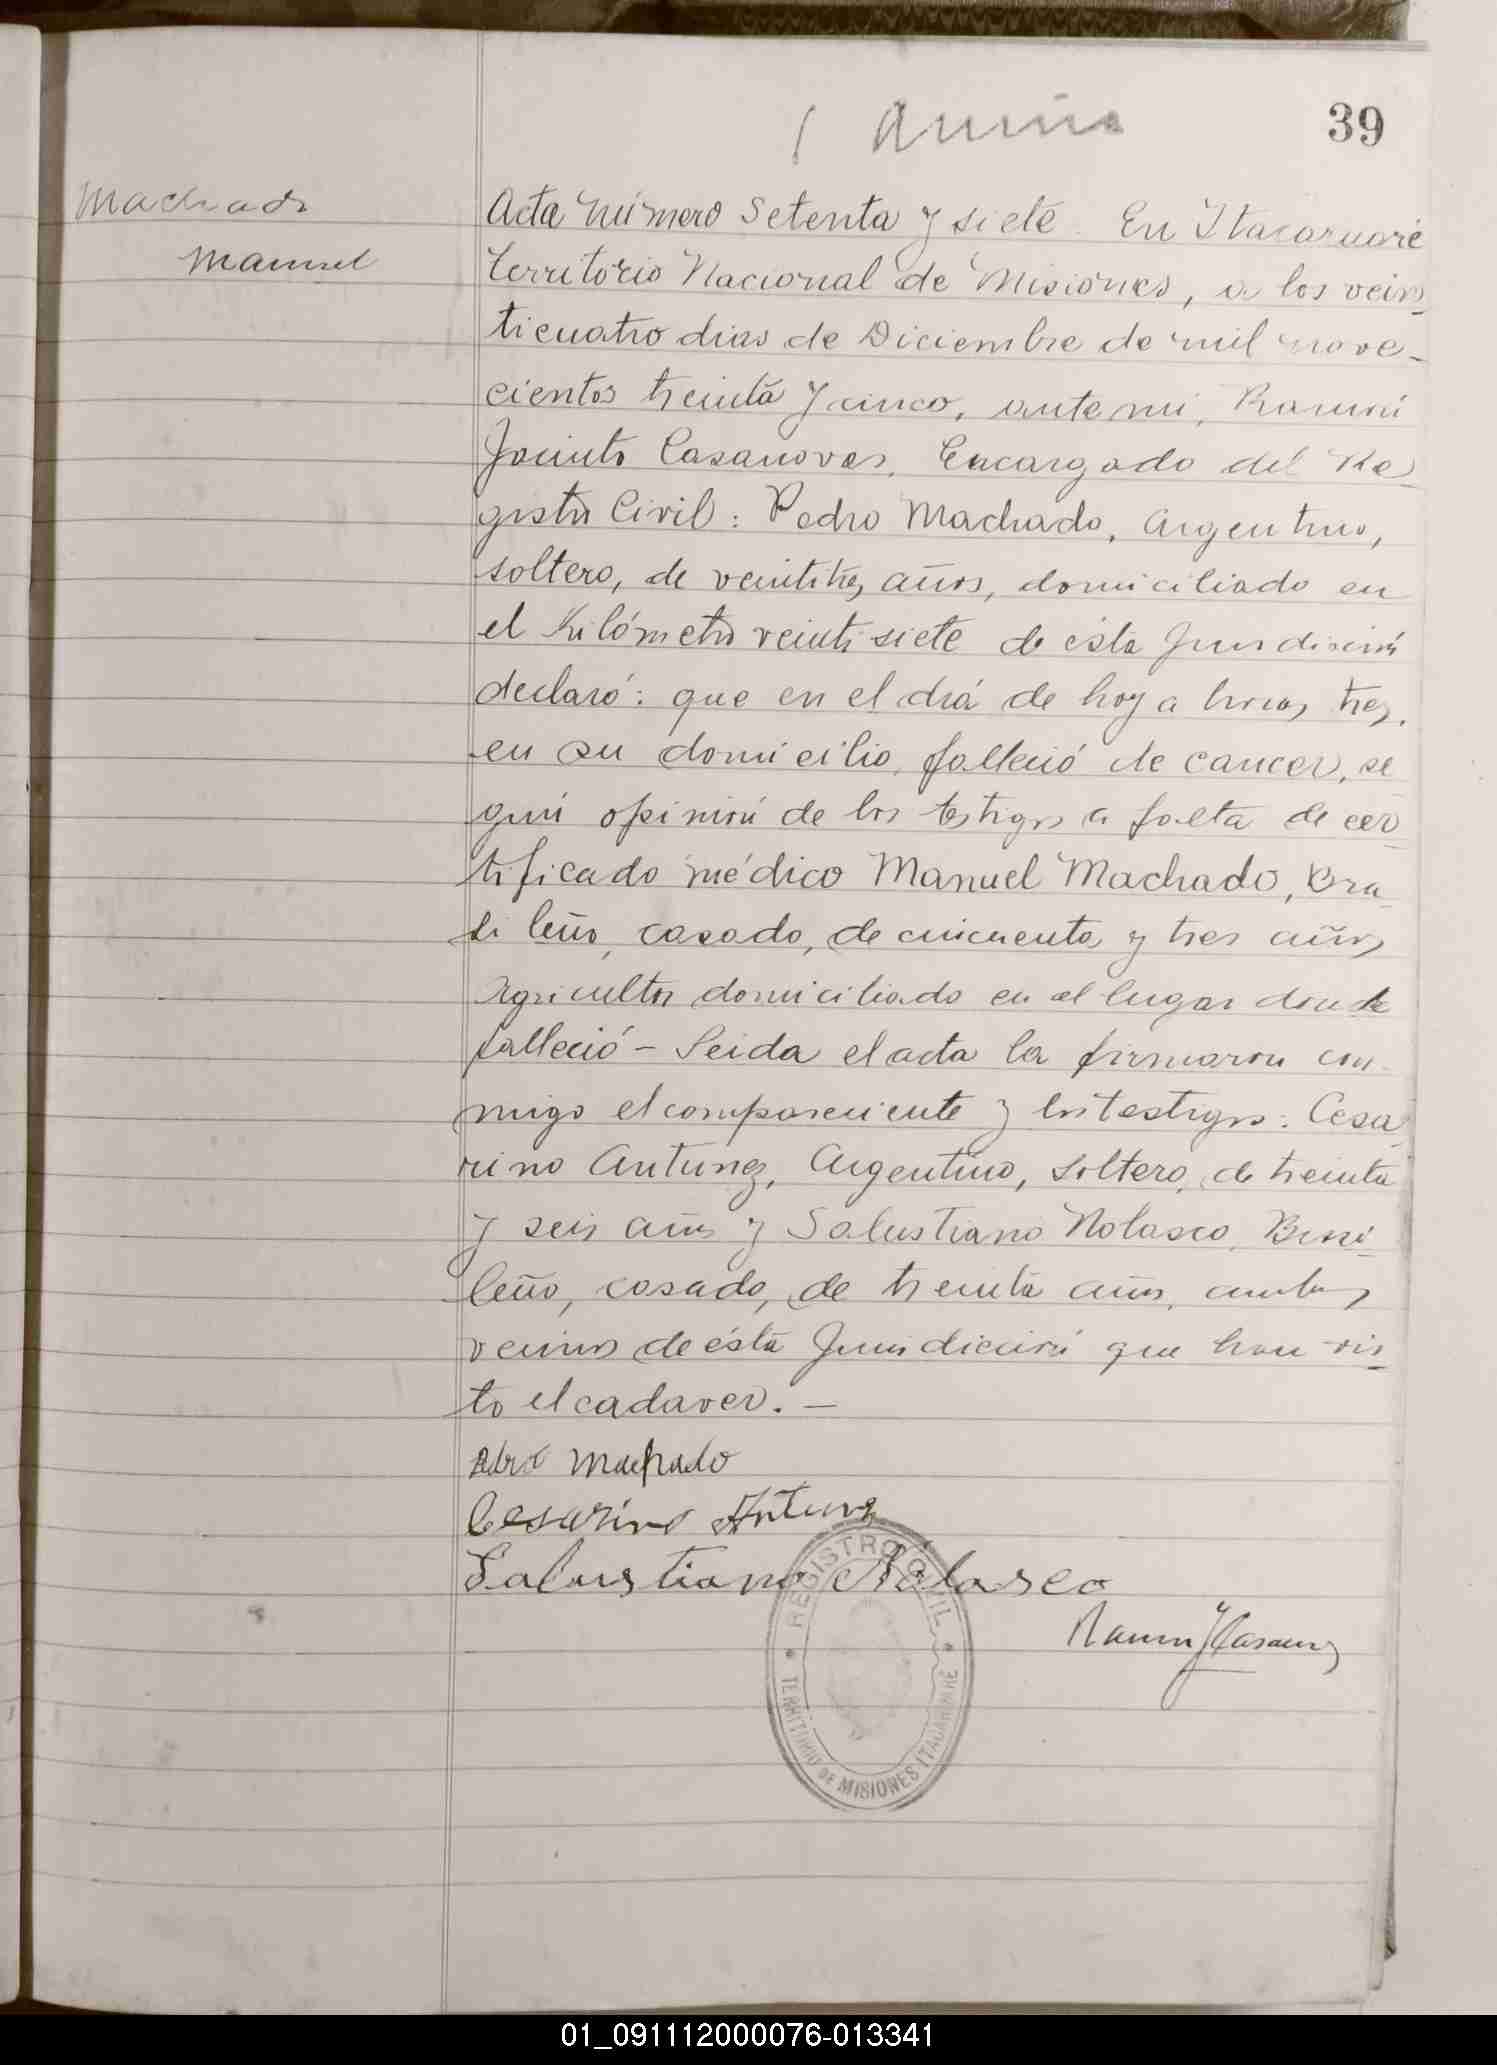 39
Machado
Manuel
Acta número Setenta y siete. En Itacaruaré
Territorio Nacional de Misiones, a los vein
ticuatro dias de Diciembre de mil nove-
cientos treinta y cinco, ante mi, Ramón
Jacinto Casanovas, Encargado del Re
gistro Civil: Pedro Machado, Argentino,
soltero, de veintitres años, domiciliado en
el Kilómetro veintisiete de ésta Jurisdicción
declaró: que en el día de hoy a horas tres,
en su domicilio, falleció de cancer, se
gún opinión de los testigos a falta de cer
tificado médico Manuel Machado, Bra
sileño, casado, de cincuenta y tres años
Agricultor domiciliado en el lugar donde
falleció - Leida el acta la firmaron con
migo el compareciente y los testigos: Cesa
rino Antunez, Argentino, soltero, de treinta
y seis años y Salustiano Nolasco, Brasi
leño, casado, de treinta años, ambos
vecinos de ésta Jurisdicción que han vis
to el cadaver. -
Pedro Machado
Cesarino Antunez
Salustiano Nolasco
Ramón J Casanovas
REGISTRO CIVIL
TERRITORIO DE MISIONES ITACARUARÉ
01_091112000076-013341